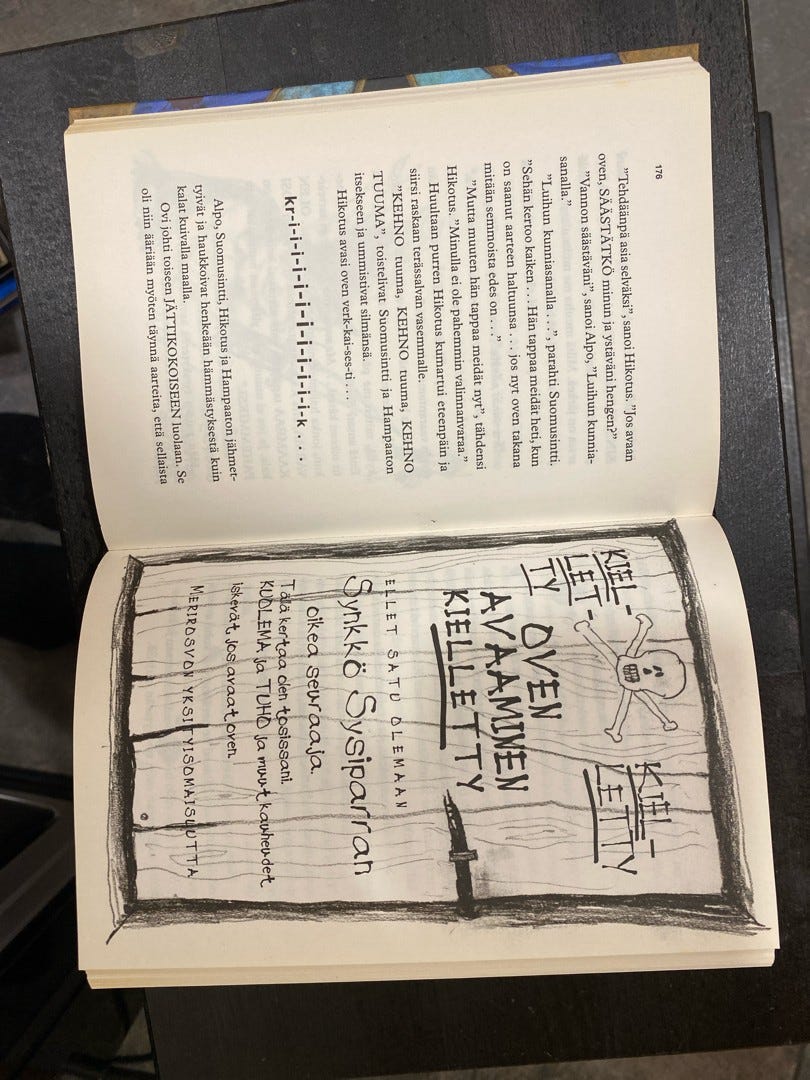 176
”Tehdäänpä asia selväksi”, sanoi Hikotus. ”Jos avaan
oven, SÄÄSTÄTKÖ minun ja ystäväni hengen?”
”Vannon säästäväni”, sanoi Alpo, ”Luihun kunnia-
sanalla.”
”Luihun kunniasanalla . . .”, parahti Suomusintti.
”Sehän kertoo kaiken . . . Hän tappaa meidät heti, kun
on saanut aarteen haltuunsa . . . jos nyt oven takana
mitään semmoista edes on . . .”
”Mutta muuten hän tappaa meidät nyt”, tähdensi
Hikotus. ”Minulla ei ole pahemmin valinnanvaraa.”
Huultaan purren Hikotus kumartui eteenpäin ja
siirsi raskaan terässalvan vasemmalle.
”KEHNO tuuma, KEHNO tuuma, KEHNO
TUUMA”, toistelivat Suomusintti ja Hampaaton
itsekseen ja ummistivat silmänsä.
Hikotus avasi oven verk-kai-ses-ti . . .
kr-i-i-i-i-i-i-i-i-i-i-i-i-k . . .
Alpo, Suomusintti, Hikotus ja Hampaaton jähmet-
tyivät ja haukkoivat henkeään hämmästyksestä kuin
kalat kuivalla maalla.
Ovi johti toiseen JÄTTIKOKOISEEN luolaan. Se
oli niin ääriään myöten täynnä aarteita, että sellaista
KIEL-
LET-
TY
KIEL-
LETTY
OVEN
AVAAMINEN
KIELLETTY
ELLET SATU OLEMAAN
Synkkö Sysiparran
oikea seuraaja.
Tälä kertaa olen tosissani.
KUOLEMA ja TUHO ja muut kauheudet
iskevät, jos avaat oven.
MERIROSVON YKSITYISOMAISUUTTA